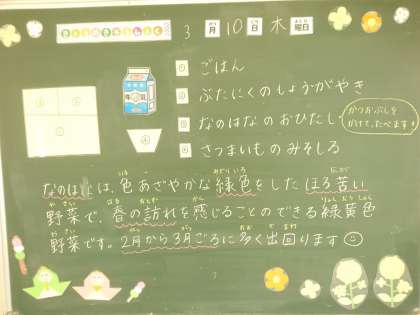 きょうのきゅうしょく 3月10日木曜日
① ごはん
② ぶたにくのしょうがやき
③ なのはなのおひたし
かつおぶしをかけて、たべます!
④ さつまいものみそしる
なのはなは、色あざやかな緑色をしたほろ苦い
野菜で、春の訪れを感じることのできる緑黄色
野菜です。2月から3月ごろに多く出回ります